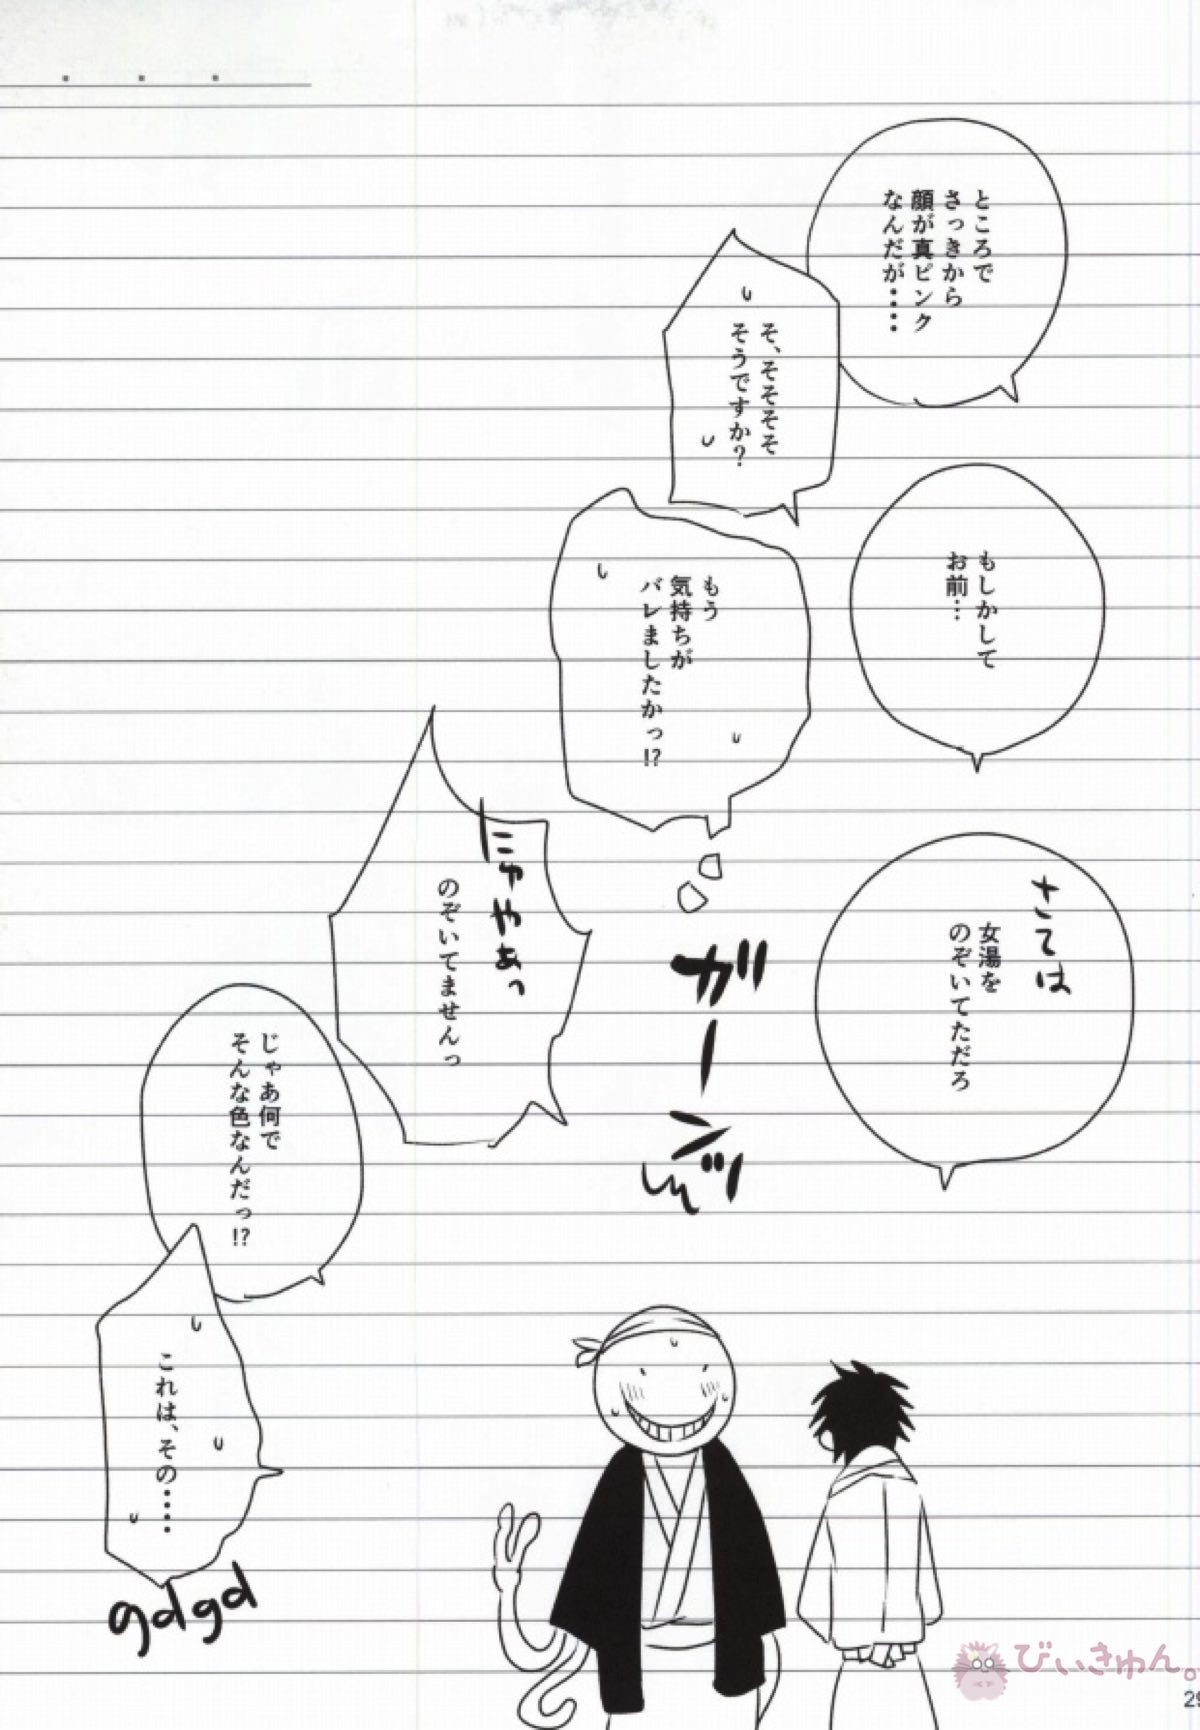 ところで
さっきから
顔が真ピンク
なんだが・・・・
そ、そそそそ
そうですか?
もしかして
お前…
もう
気持ちが
バレましたかっ!?
さては
女湯を
のぞいてただろ
ガーンッ
にゃやぁっ
のぞいてませんっ
じゃあ何で
そんな色なんだっ!?
これは、その・・・・・
gdgd
びぃきゅん。
29